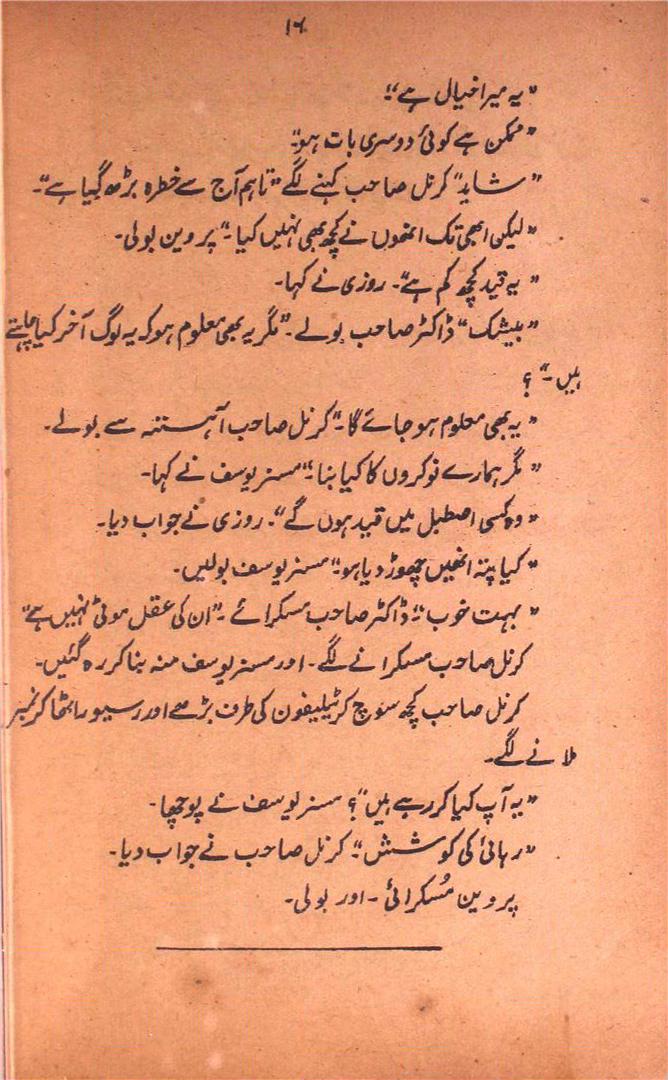 ۱۶
"یہ میرا خیال ہے"۔
"ممکن ہے کوئی دوسری بات ہو"۔
"شاید" کرنل صاحب کہنے لگے "تاہم آج سے خطرہ بڑھ گیا ہے"۔
"لیکن ابھی تک انھوں نے کچھ بھی نہیں کیا۔" پروین بولی۔
"یہ قید کچھ کم ہے"۔ روزی نے کہا۔
"بیشک" ڈاکٹر صاحب بولے۔ "مگر یہ بھی معلوم ہو کہ یہ لوگ آخر کیا چاہتے
ہیں۔" ؟
"یہ بھی معلوم ہو جائے گا۔" کرنل صاحب آہستہ سے بولے۔
"مگر ہمارے نوکروں کا کیا بنا۔" مسز یوسف نے کہا۔
"وہ کسی اصطبل میں قید ہوں گے"۔ روزی نے جواب دیا۔
"کیا پتہ انھیں چھوڑ دیا ہو۔" مسز یوسف بولیں۔
"بہت خوب"۔ ڈاکٹر صاحب مسکرائے۔ "ان کی عقل موٹی نہیں ہے"
کرنل صاحب مسکرانے لگے۔ اور مسز یوسف منہ بنا کر رہ گئیں۔
کرنل صاحب کچھ سوچ کر ٹیلیفون کی طرف بڑھے اور رسیور اٹھا کر نمبر
ملانے لگے۔
"یہ آپ کیا کر رہے ہیں"؟ مسز یوسف نے پوچھا۔
"رہائی کی کوشش"۔ کرنل صاحب نے جواب دیا۔
پروین مُسکرائی۔ اور بولی۔